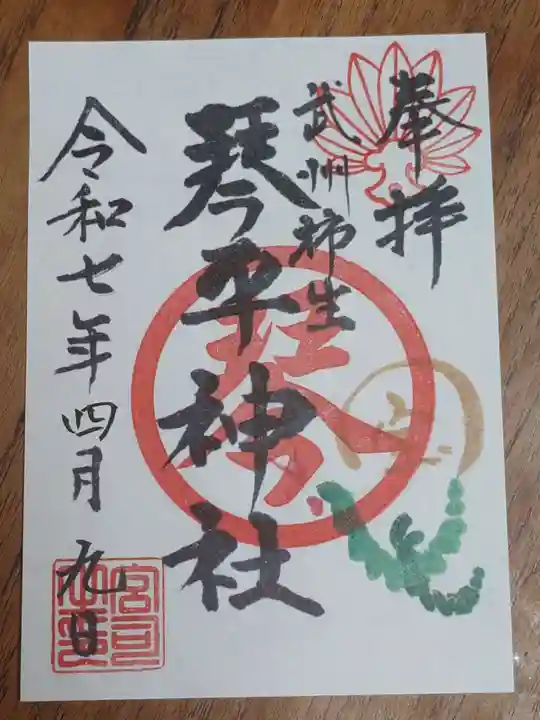 奉拝
武州柿生
琴平神社
令和七年四月九日
琴